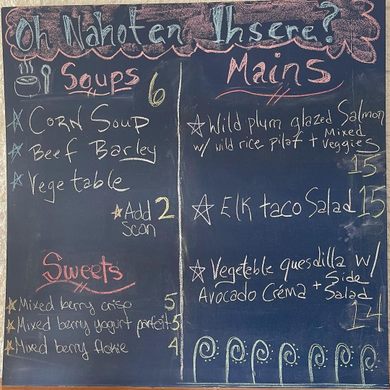 Oh Nahoten Ihsere?
Soups 6
Corn Soup
Beef Barley
Vegetable
Add 2
scon
Sweets
Mixed berry crisp 5
Mixed berry yogurt parfait 5
Mixed berry flake 4
Mains
Wild plum glazed Salmon
w/ wild rice pilaf + Mixed
Veggies
15
Elk taco Salad 15
Vegetable quesadilla w/
Avocado Créma + Side
Salad
14